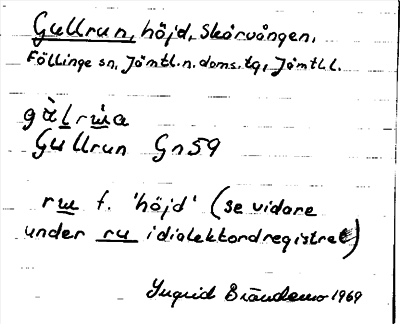 Gullrun, höjd, Skärvången,
Föllinge sn, Jämtl. n. doms. tg, Jämtl. l.
gàlrɯa
Gullrun Gn59
rɯ f. 'höjd' (se vidare
under ru i dialektordregistret)
Ingrid Brändemo 1969